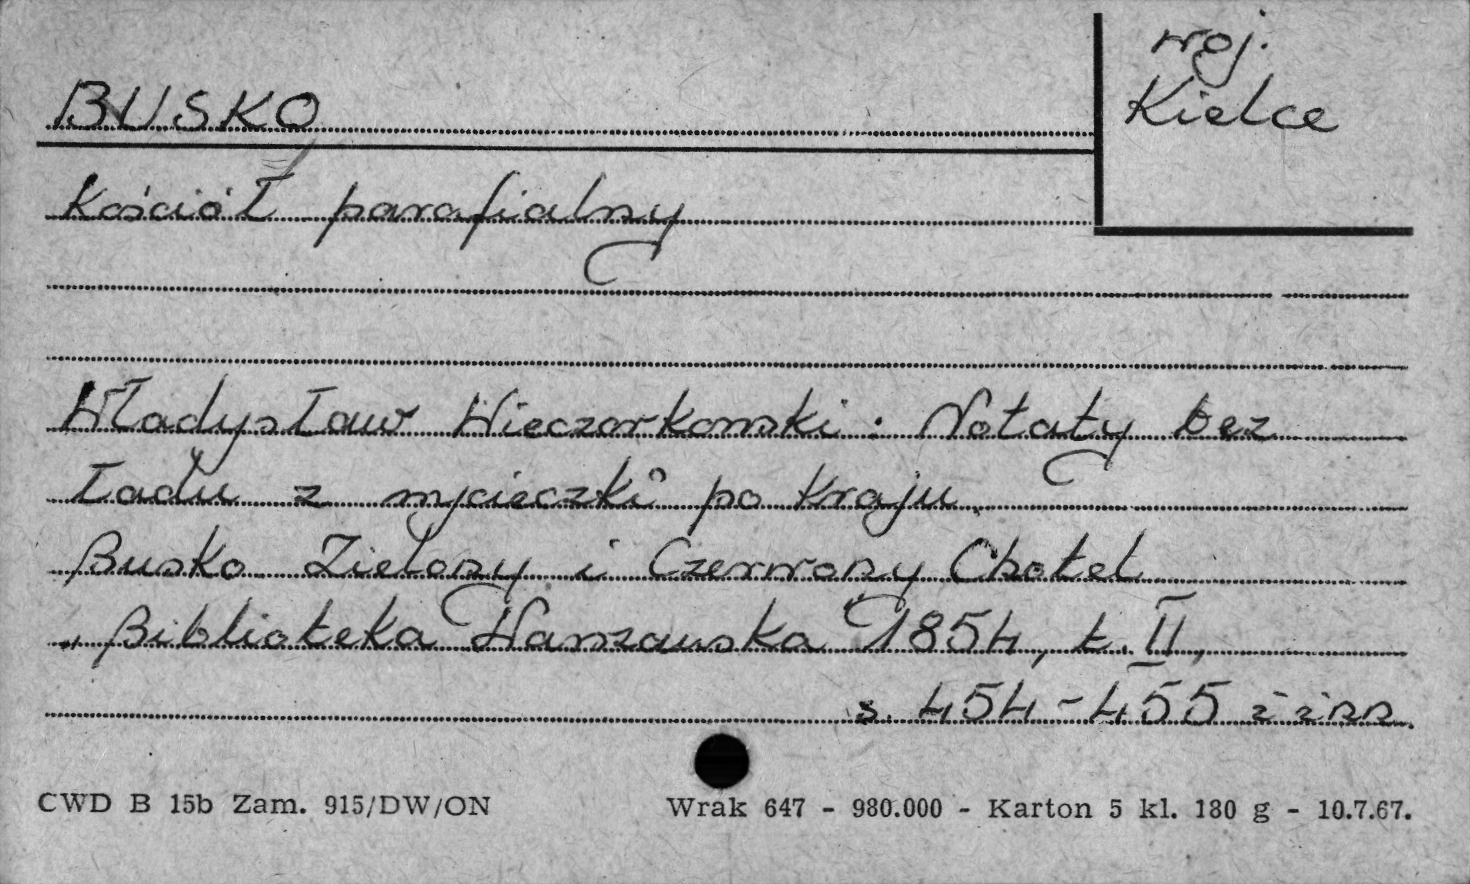 BUSKO
woj.
Kielce
Kościół parafialny
Władysław Wieczorkowski: Notaty bez
ładu z wycieczki po kraju
Busko Zielony i Czerwony Chotel
„Biblioteka Warszawska 1854, t. II,
s. 454-455 i inn.
CWD B 15b Zam. 915/DW/ON
Wrak 647 - 980.000 - Karton 5 kl. 180 g - 10.7.67.